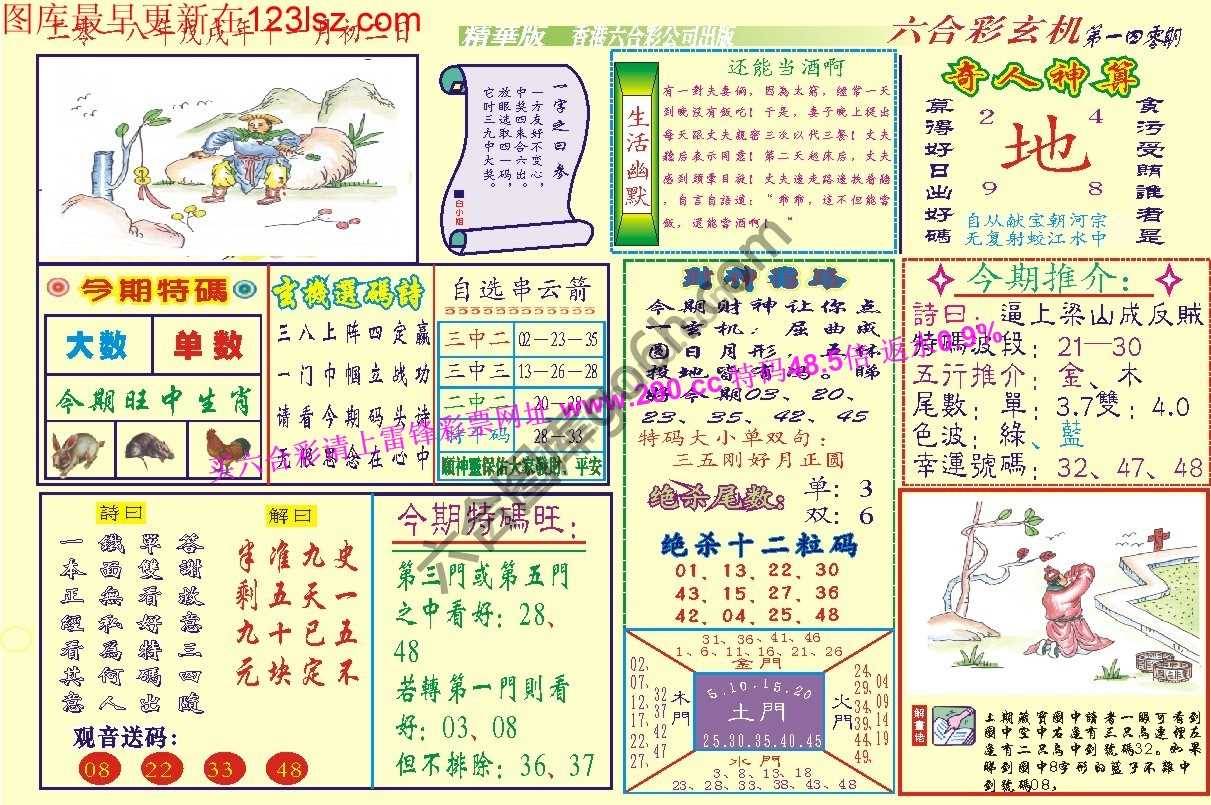 图库最早更新在123lsz.com
二零一八年戊戌年十一月初二日
精華版 香港六合彩公司出版
六合彩玄机 第一四零期
一字之曰参
一方友好不变心，
中奖四来合六出。
放眼选取四一码，
它叶三九中大奖。
白小姐
生活幽默
还能当酒啊
有一對夫妻倆，因為太窮，經常一天
到晚沒有飯吃！于是，妻子晚上提出
每天跟丈夫親密三次以代三餐！丈夫
聽后表示同意！第二天起床后，丈夫
感到頭暈目眩！丈夫連走路還扶着牆
，自言自語道：“乖乖，這不但能當
飯，還能當酒啊！“
奇人神算
算得好日出好碼
2 4
地
9 8
貪污受賄誰渚是
自从献宝朝河宗
无复射蛟江水中
今期特碼
大数 单数
今期旺中生肖
玄機選碼詩
三八上阵四定赢
一门巾帼立战功
请看今期码头诗
无限思念在心中
自选串云箭
三中二 02—23—35
三中三 13—26—28
二中二 20—28
特平码 28—33
願神靈保佑大家發財、平安
今期财神让你点
一玄机：屈曲成
圆日月形，五体
投地皆有码。睇
好今期03、20、
23、35、42、45
特码大小单双句：
三五刚好月正圆
绝杀尾数：
单：3
双：6
绝杀十二粒码
01、13、22、30
43、15、27、36
42、04、25、48
今期推介：
詩曰：逼上梁山成反賊
特碼波段：21—30
五行推介：金、木
尾數：單：3.7雙：4.0
色波：綠、藍
幸運號碼：32、47、48
詩曰
一本正經看其意
鐵面無私為何人
單雙看好特碼出
答謝故意三四隨
解曰
半剩九元
准五十块
九天已定
史一五不
观音送码：
08 22 33 48
今期特碼旺：
第三門或第五門
之中看好：28、
48
若轉第一門則看
好：03、08
但不排除：36、37
31、36、41、46
1、6、11、16、21、26
金門
02、07、12、17、22、27
32、37、42、47
木門
5.10.15.20
土門
25.30.35.40.45
火門
24、29、34、39、44、49、
04、09、14、19
水門
3、8、13、18
23、28、33、38、43、48
解畫佬
上期藏寶圖中讀者一眼可看到
圖中空中右邊有三只鳥連裡左
邊有二只鳥中到號碼32。如果
睇到圖中8字形的籃子不難中
到號碼08，
买六合彩请上雷锋彩票网址 www.280.cc 特码48.5倍 返水0.9%